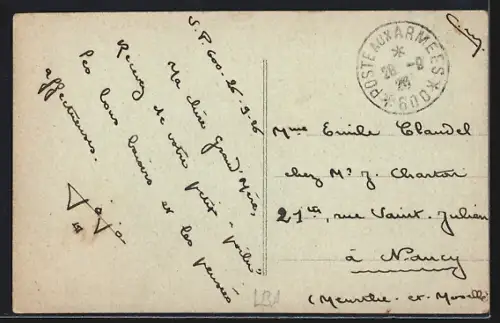 S.P. 600. 26-9-26
Ma chère Grand'Mère,
Recevez de votre petit "poilu"
les bons baisers et les pensées
affectueuses.
Jojo
POSTE AUX ARMEES * 600 *
*
26 - 9
26
Mme Emile Claudel
chez Mr J. Charton
21 rue Saint-Julien
à Nancy
(Meurthe-et-Moselle)